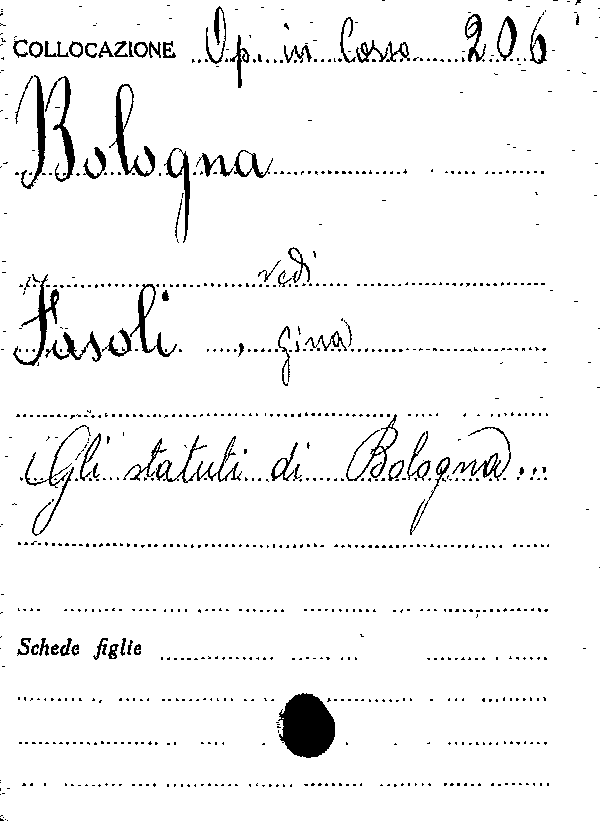 COLLOCAZIONE Op. in Corso 206
Bologna
vedi
Fasoli, Gina
Gli statuti di Bologna...
Schede figlie